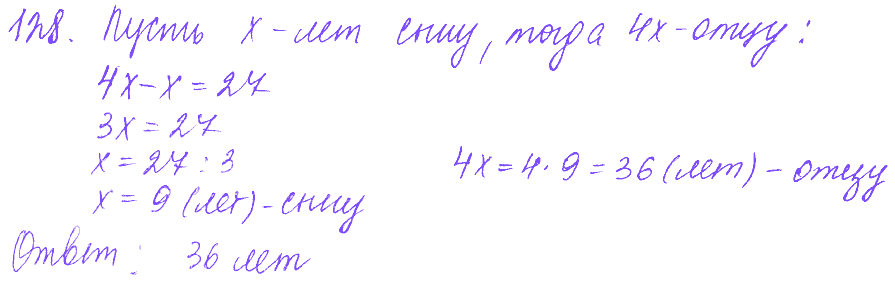 128. Пусть x - лет сыну, тогда 4x - отцу:
4x - x = 27
3x = 27
x = 27 : 3
4x = 4 · 9 = 36 (лет) - отцу
x = 9 (лет) - сыну
Ответ: 36 лет